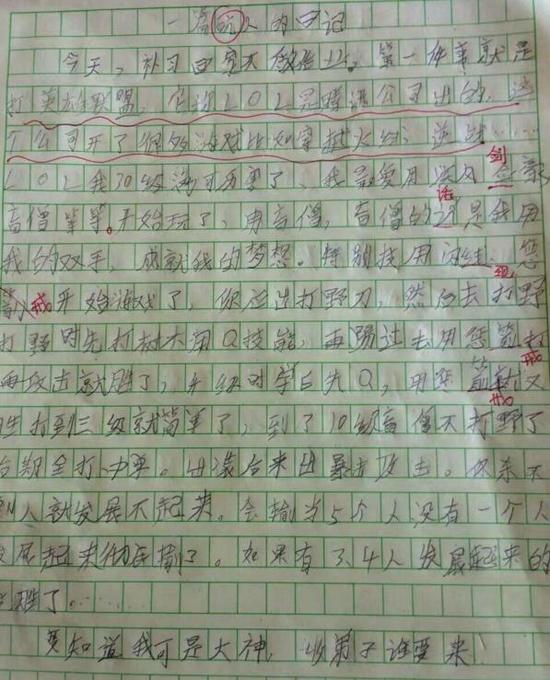 一篇玩人的日记
今天，补习回家不敬。第一件事就是
打英雄联盟，它称LOL是腾讯公司出的，这
个公司开了很多游戏比如穿越火线，逆战……
LOL我30级满可历害了，我最爱用疾风剑豪
盲僧等等。开始玩了，用盲僧，盲僧的话是我用
我的双手，成就我的梦想。特别技用闪红，惩
戒开始游戏了，你应出打野刀，然后去打野
打野时先打树木用Q技能，再踢过去用惩戒打
再攻击就胜了，升级时学E先Q，用惩戒又
打到三级就简单了，到了10级盲僧不打野了
后期全打中单。出装后来出暴击攻击。你杀不
到人就发展不起来。会输当5个人没有一个人
发展起来彻底输了。如果有3、4人发展起来的
胜了……
莫知道我可是大神，收弟子谁要来